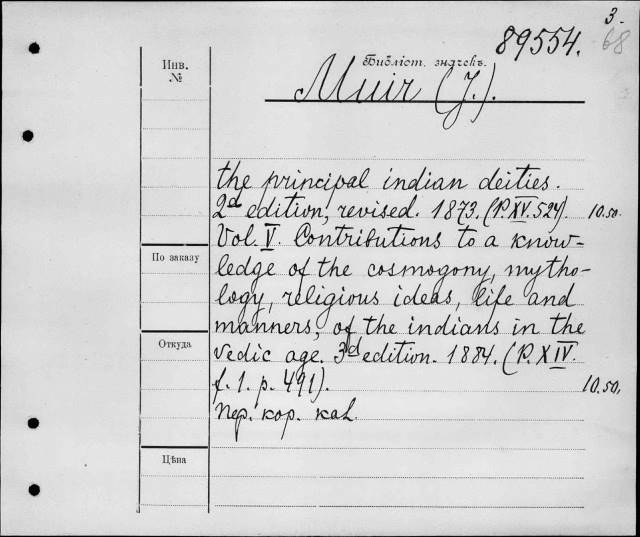 3.
89554. 68
Инв.
№
Библіот. значекъ.
Muir (J.).
the principal indian deities.
2d edition, revised. 1873. (P. XV. 524). 10.50.
Vol. V. Contributions to a know-
По заказу
ledge of the cosmogony, mytho-
logy, religious ideas, life and
manners, of the indians in the
Откуда
vedic age. 3d edition. 1884. (P. XIV.
f. 1. p. 491). 10.50.
пер. кор. каL.
Цѣна